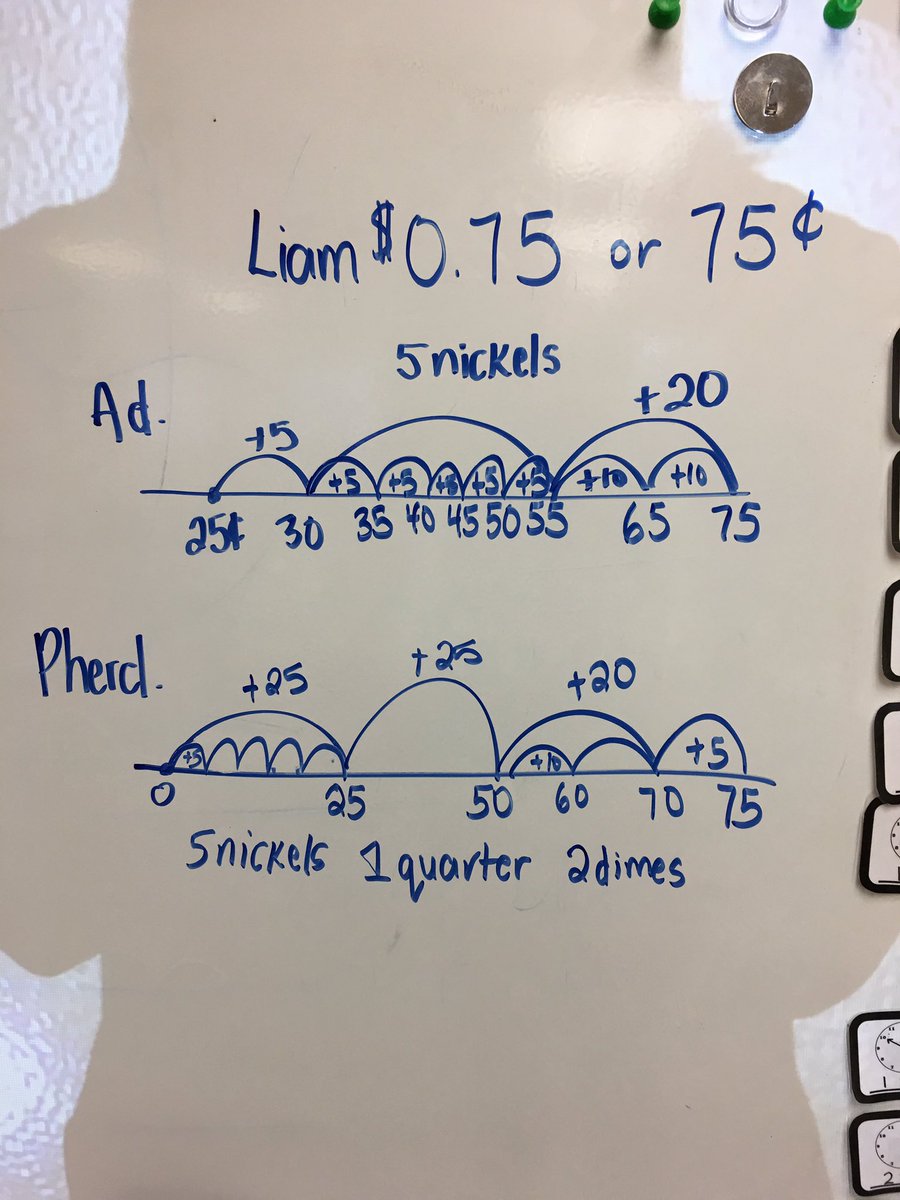 Liam $0.75 or 75¢
5 nickels
Ad.
+5
+20
+5 +5 +5 +5 +5 +10 +10
25¢ 30 35 40 45 50 55 65 75
Pherd.
+25 +25 +20
+5 +10 +5
0 25 50 60 70 75
5 nickels 1 quarter 2 dimes
1
2